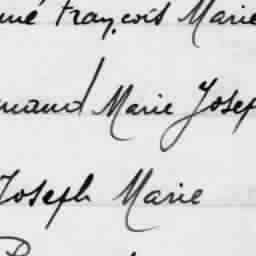 François Marie
Marie Josep
Joseph Marie